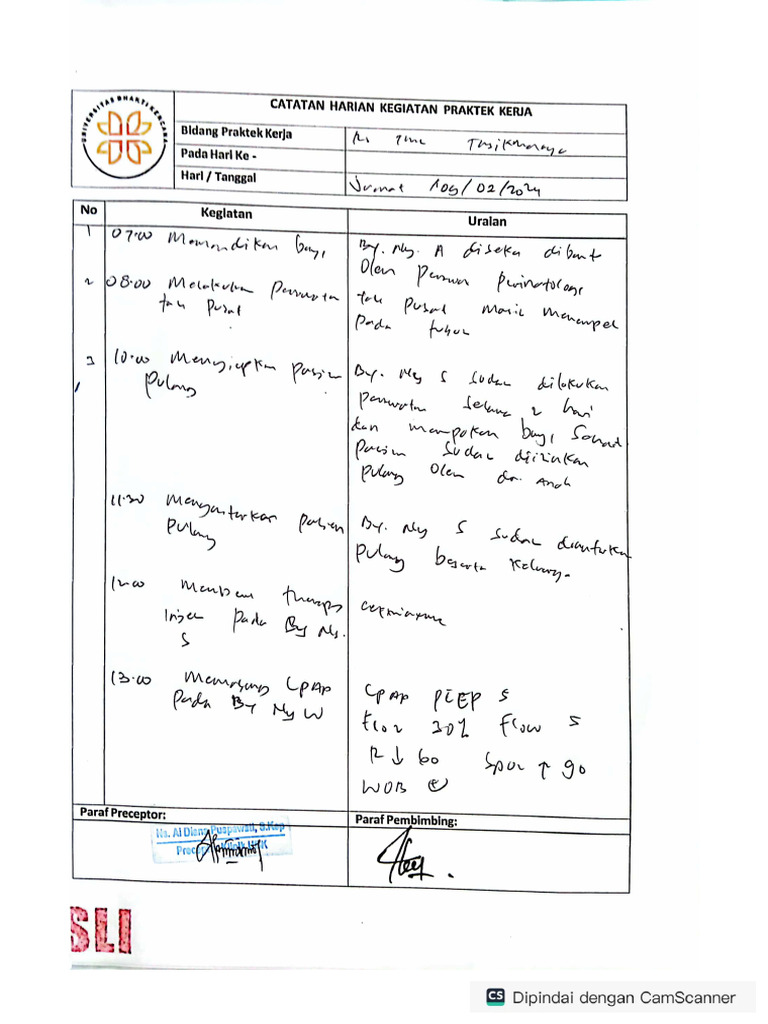 UNIVERSITAS BHAKTI KENCANA
CATATAN HARIAN KEGIATAN PRAKTEK KERJA
Bidang Praktek Kerja
Tasikmalaya
Pada Hari Ke -
Hari / Tanggal
Jumat /09/02/2024
No Kegiatan Uraian
1 07:00 Memandikan bayi
By. Ny. A diseka dibant
Oleh perawa perinatologi
2 08:00 Melakukan perawata
tali pusat
tali pusat masih menempel
pada tubuh
3 10:00 Menyiapkan pasien
pulang
By. Ny S sudah dilakukan
perawatan selama 2 hari
dan merupakan bayi
pasien sudah diizinkan
pulang oleh dr. Anak
11:30 Mengantarkan pasien
pulang
By. Ny S sudah diantarkan
pulang beserta keluarga
12:00 therapy
pada By Ny.
S
13:00 Memasang CPAP
pada By Ny W
CPAP PEEP 5
FiO2 30% Flow 5
R ↓ 60 SpO2 ↑ 90
WOB
Paraf Preceptor:
Paraf Pembimbing:
Puspawati, S.Kep
SLI
CS Dipindai dengan CamScanner